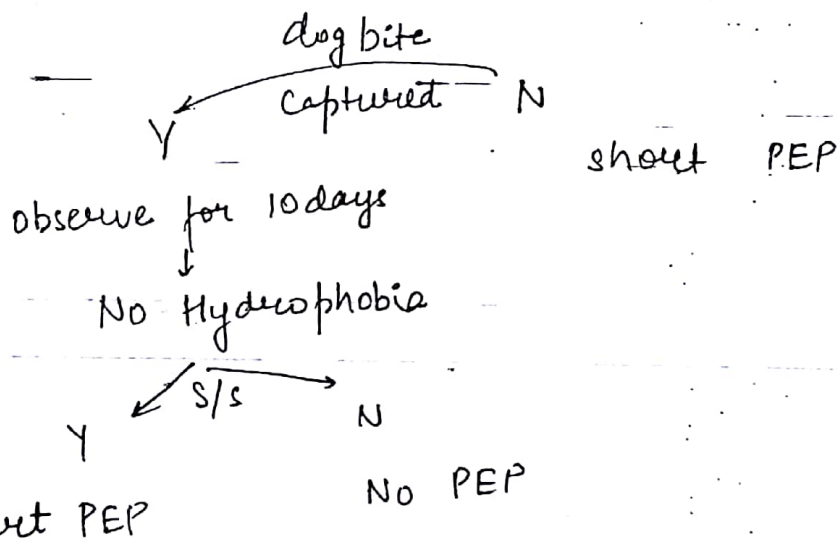 dog bite
Captured N
Y
short PEP
observe for 10 days
No Hydrophobia
S/S
Y N
No PEP
rt PEP